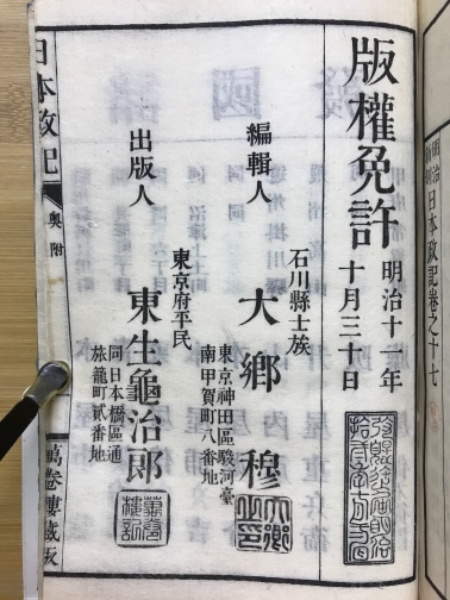 明治
日本政記卷之十七
版權免許
明治十一年
十月三十日
編輯人
石川縣士族
大鄉穆
東京神田區駿河臺
南甲賀町八番地
出版人
東京府平民
東生龜治郎
同日本橋區通
旅籠町貳番地
日本政記
奥附
萬卷樓藏版